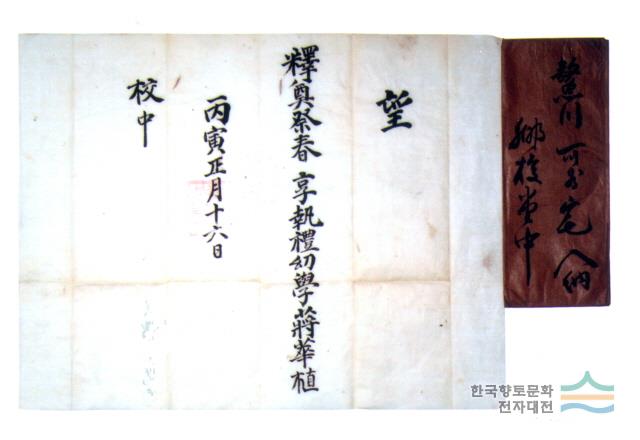 鰲川 宅 入納
鄕校 中
望
釋奠祭春享執禮幼學蔣華植
丙寅正月十六日
校中
한국향토문화
전자대전